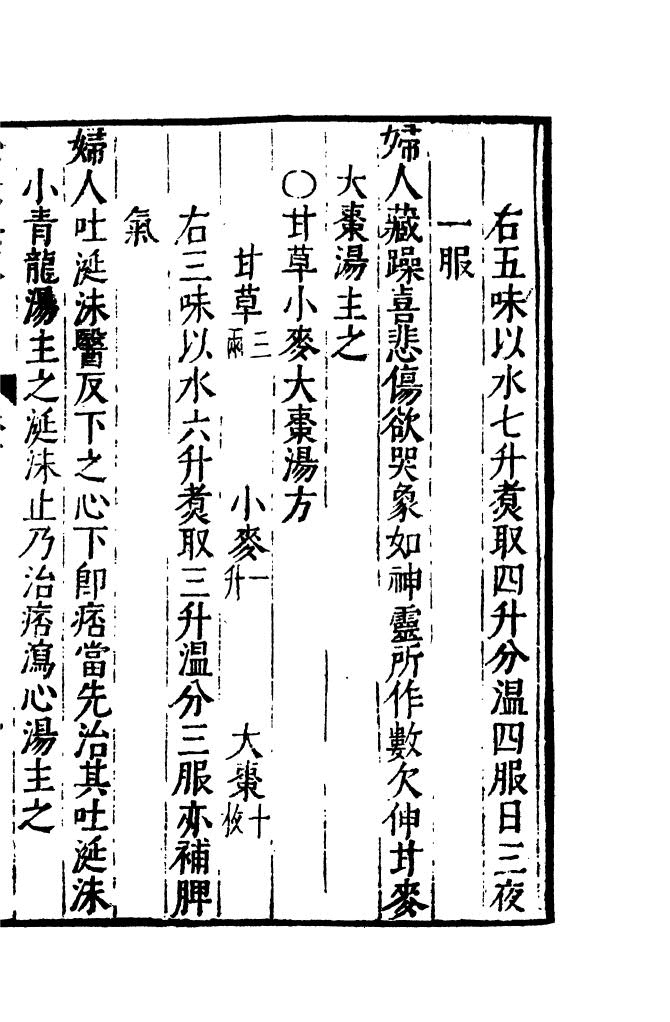 右五味以水七升煑取四升分温四服日三夜
一服
婦人藏躁喜悲傷欲哭象如神靈所作數欠伸甘麥
大棗湯主之
〇甘草小麥大棗湯方
甘草三兩 小麥一升 大棗十枚
右三味以水六升煑取三升温分三服亦補脾
氣
婦人吐涎沫醫反下之心下卽痞當先治其吐涎沫
小青龍湯主之涎沫止乃治痞瀉心湯主之